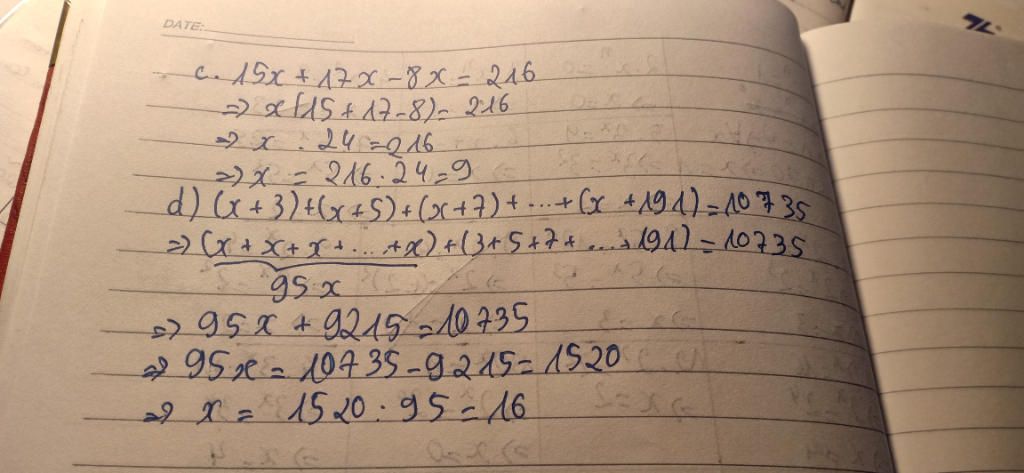 DATE:
c. 15x + 17x - 8x = 216
=> x(15 + 17 - 8) = 216
=> x . 24 = 216
=> x = 216 : 24 = 9
d) (x + 3) + (x + 5) + (x + 7) + ... + (x + 191) = 10735
=> (x + x + x + ... + x) + (3 + 5 + 7 + ... + 191) = 10735
95x
=> 95x + 9215 = 10735
=> 95x = 10735 - 9215 = 1520
=> x = 1520 : 95 = 16